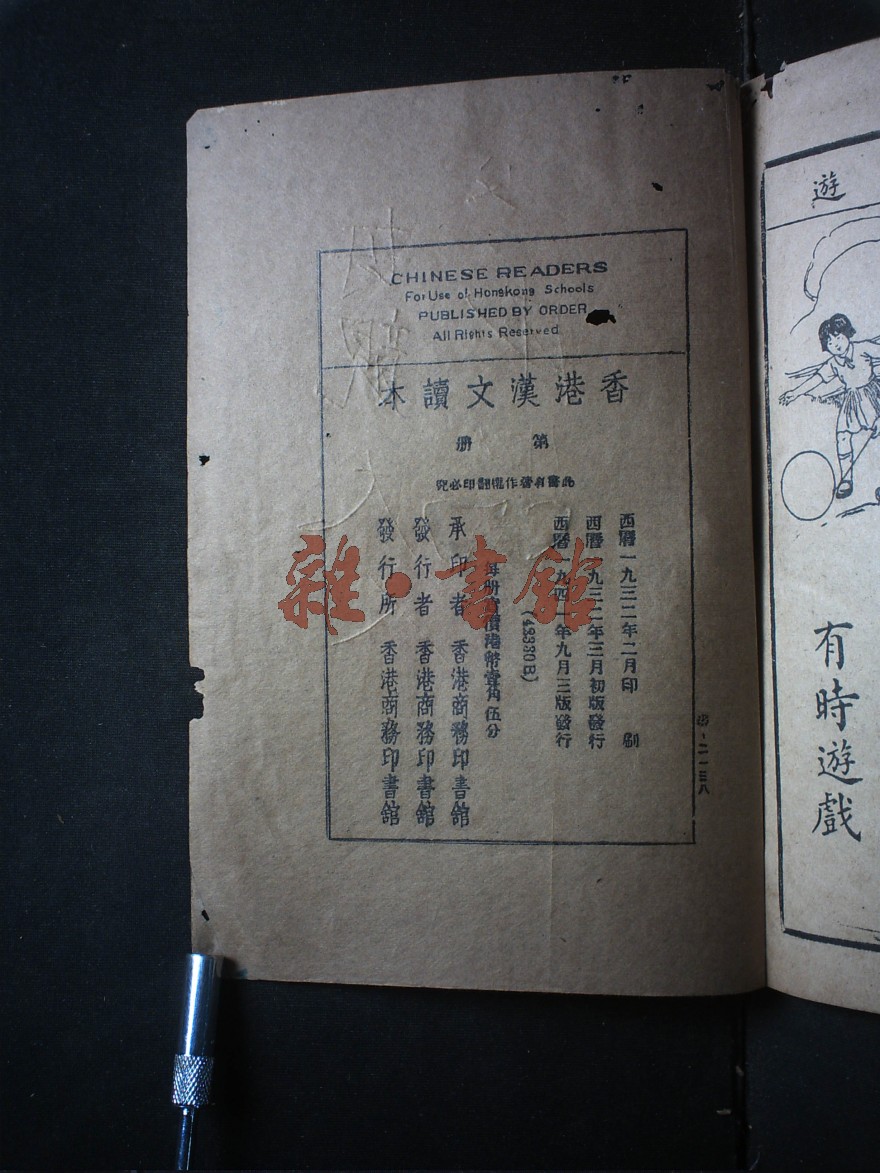 CHINESE READERS
For Use of Hongkong Schools
PUBLISHED BY ORDER
All Rights Reserved
香港漢文讀本
第 册
此書有著作權翻印必究
西曆一九三二年二月印刷
西曆一九三二年三月初版發行
西曆一九四一年九月三版發行
(43330B)
每册實價港幣壹角伍分
承印者 香港商務印書館
發行者 香港商務印書館
發行所 香港商務印書館
二一三八
雜·書館
遊
有時遊戲